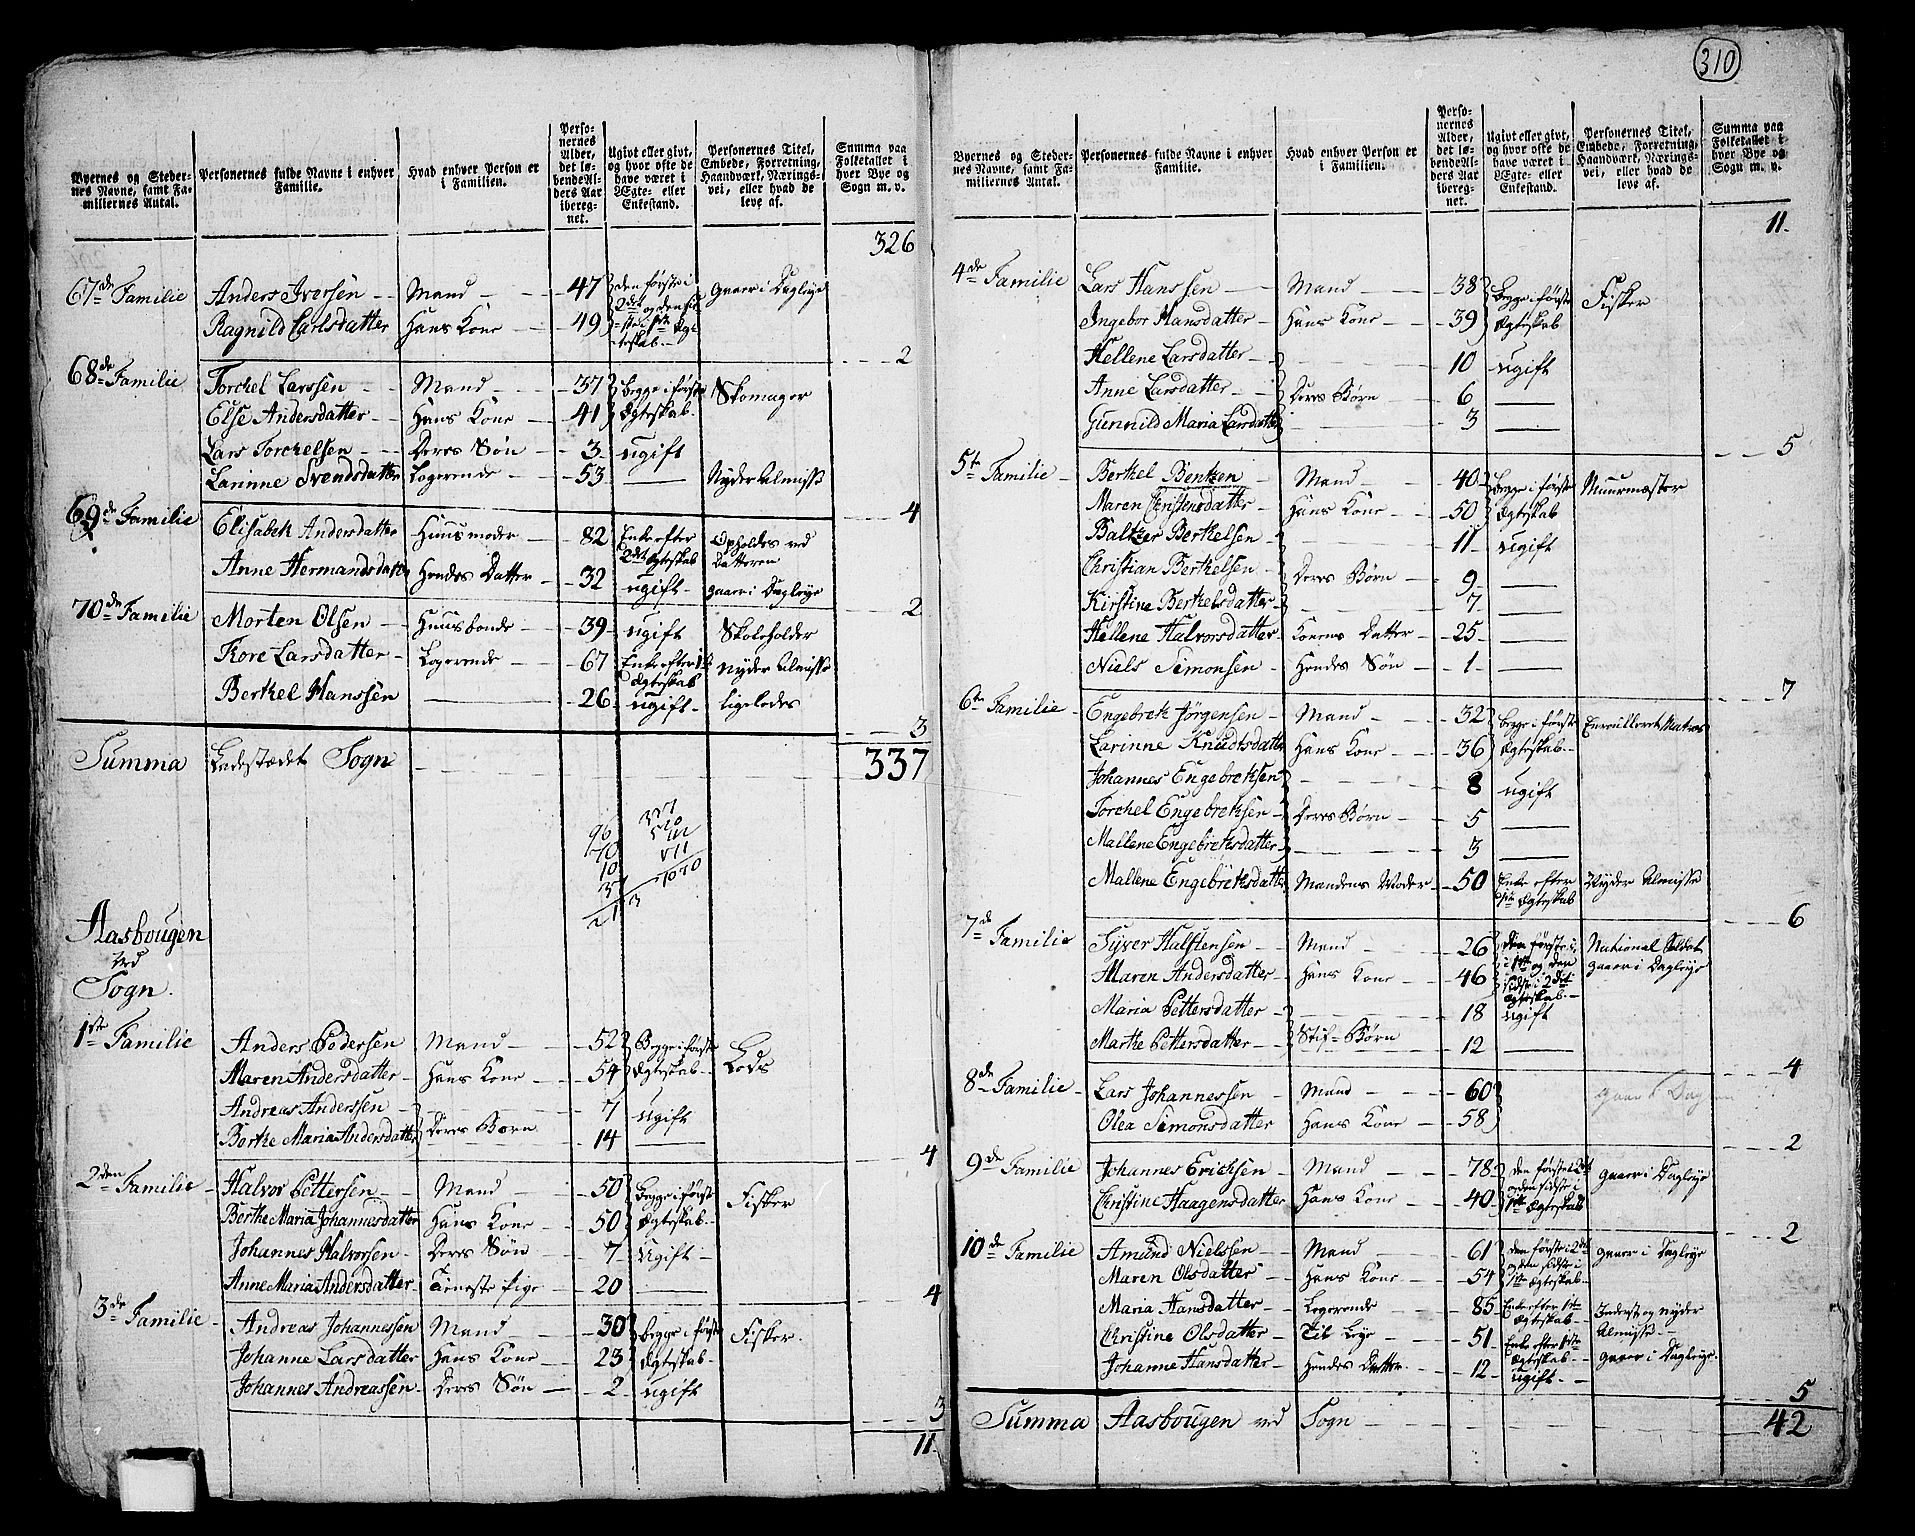 310
Byernes og Stedernes Navne, samt Familiernes Antal.
Personernes fulde Navne i enhver Familie.
Hvad enhver Person er i Familien.
Personernes Alder, det løbende Alders Aar iberegnet.
Ugivt eller givt, og hvor ofte de have været i Ægte- eller Enkestand.
Personernes Titel, Embede, Forretning, Haandværk, Næringsvei, eller hvad de leve af.
Summa paa Folketallet i hver Bye og Sogn m. v.
326
67de Familie Anders Iversen Mand 47 den første i 2det og den sidste i 1ste Ægteskab Gaaer i Dagleje
Ragnild Carlsdatter Hans Kone 49
2
68de Familie Torchel Larssen Mand 37 begge i første Ægteskab Skomager
Else Andersdatter Hans Kone 41
Lars Torchelsen Deres Søn 3 ugift
Larinne Svendsdatter Logerende 53 Nyder Almisse
4
69de Familie Elisabek Andersdatter Huusmoder 82 Enke efter 2det Ægteskab Opholdes ved Datteren
Anne Hermandsdatter Hendes Datter 32 ugift gaaer i Dagleje
2
70de Familie Morten Olsen Huusbonde 39 ugift Skoleholder
Kore Larsdatter Logerende 67 Enke efter 1te Ægteskab nyder Almisse
Berthel Hanssen 26 ugift ligeledes
3
Summa Ladestædet Sogn 337
Aasbougen
ved
Sogn.
1ste Familie Anders Pedersen Mand 52 Begge i første Ægteskab Lods
Maren Andersdatter Hans Kone 54
Andreas Anderssen Deres Børn 7 ugift
Berthe Maria Andersdatter 14
4
2den Familie Halvor Pettersen Mand 50 begge i første Ægteskab Fisker
Berthe Maria Johannesdatter Hans Kone 50
Johannes Halvorsen Deres Søn 7 ugift
Anne Maria Andersdatter Tieneste Pige 20
4
3de Familie Andreas Johannessen Mand 30 begge i første Ægteskab Fisker
Johanne Larsdatter Hans Kone 23
Johannes Andreassen Deres Søn 2 ugift
3
11
Byernes og Stedernes Navne, samt Familiernes Antal.
Personernes fulde Navne i enhver Familie.
Hvad enhver Person er i Familien.
Personernes Alder, det løbende Alders Aar iberegnet.
Ugivt eller givt, og hvor ofte de have været i Ægte- eller Enkestand.
Personernes Titel, Embede, Forretning, Haandværk, Næringsvei, eller hvad de leve af.
Summa paa Folketallet i hver Bye og Sogn m. v.
11
4de Familie Lars Hanssen Mand 38 begge i første Ægteskab Fisker
Ingebor Hansdatter Hans Kone 39
Hellene Larsdatter 10 ugift
Anne Larsdatter Deres Børn 6
Gunnild Maria Larsdatter 3
5
5te Familie Berthel Bentzen Mand 40 begge i første Ægteskab Muurmæster
Maren Christensdatter Hans Kone 50
Baltzer Berthelsen 11 ugift
Christian Berthelsen Deres Børn 9
Kirstine Berthelsdatter 7
Hellene Halvorsdatter Konens Datter 25
Niels Simonsen Hendes Søn 1
7
6te Familie Engebreth Jørgensen Mand 32 begge i første Ægteskab Enroulleret Matros
Larinne Knudtsdatter Hans Kone 36
Johannes Engebrethsen 8 ugift
Torchel Engebrethsen Deres Børn 5
Mallene Engebrethsdatter 3
Mallene Engebrethsdatter Mandens Moder 50 Enke efter 1ste Ægteskab Nyder Almisse
6
7de Familie Syver Halstensen Mand 26 den første i 1ste og den sidste i 2det Ægteskab National Soldat gaaer i Dagleje
Maren Andersdatter Hans Kone 46
Maria Pettersdatter 18 ugift
Marthe Pettersdatter Stif-Børn 12
4
8de Familie Lars Johannessen Mand 60 gaaer i Dag
Olea Simonsdatter Hans Kone 58
2
9de Familie Johannes Erichsen Mand 78 den første i 2det og den sidste i 1ste Ægteskab gaaer i Dagleje
Christine Haagensdatter Hans Kone 40
2
10de Familie Amund Nielssen Mand 61 den første i 2det og den sidste i 1ste Ægteskab gaaer i Dagleje
Maren Olsdatter Hans Kone 54
Maria Hansdatter Logerende 85 Enke efter 1ste Ægteskab Inderst og nyder Almisse
Christine Olsdatter Til Leye 51 Enke efter 1ste Ægteskab gaaer i Dagleje
Johanne Hansdatter Hendes Datter 12 ugift
5
Summa Aasbougen ved Sogn 42